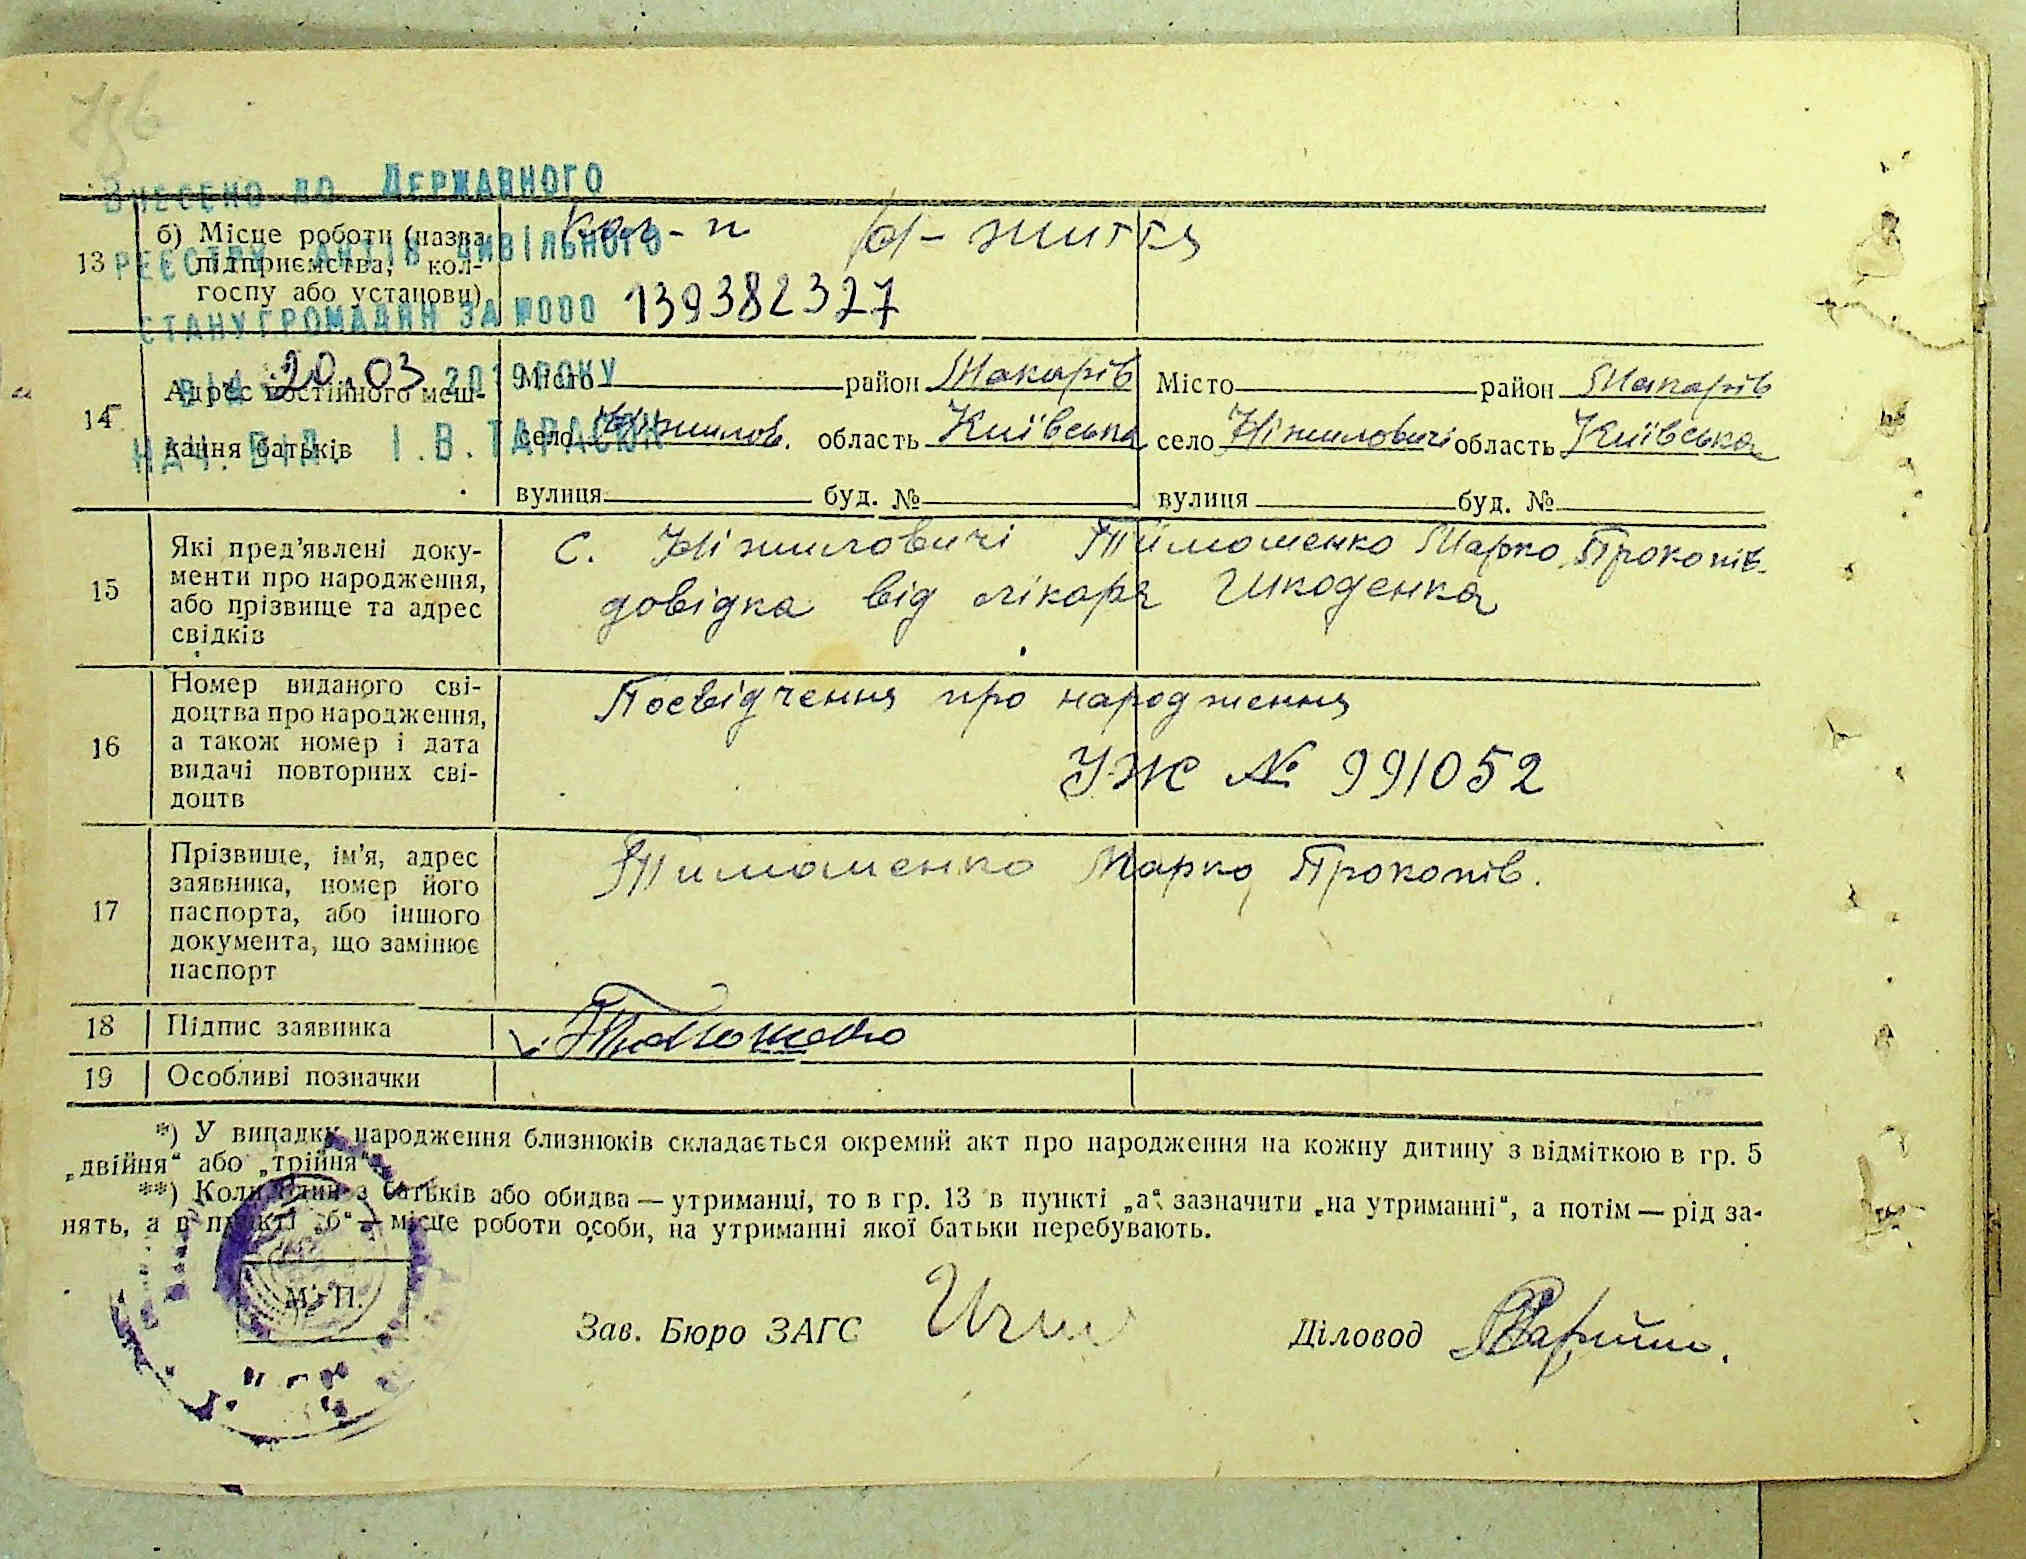 Внесено до Державного
реєстру актів цивільного
стану громадян за №000 139382327
від 20.03 2019 року
Нач. від. І.В. Тараск
13 б) Місце роботи (назва підприємства, кол-
госпу або установи)
кол-п життя
14 Адрес постійного меш-
кання батьків
Місто район Макарів
село Ніжилов. область Київська
вулиця буд. №
Місто район Макарів
село Ніжиловичі область Київська
вулиця буд. №
15 Які пред'явлені доку-
менти про народження,
або прізвище та адрес
свідків
с. Ніжиловичі Тимошенко Марко Прокопів.
довідка від лікаря Шкоденка
16 Номер виданого сві-
доцтва про народження,
а також номер і дата
видачі повторних сві-
доцтв
Посвідчення про народження
УЖ № 991052
17 Прізвище, ім'я, адрес
заявника, номер його
паспорта, або іншого
документа, що замінює
паспорт
Тимошенко Марко Прокопів.
18 Підпис заявника
Тимошенко
19 Особливі позначки
*) У випадку народження близнюків складається окремий акт про народження на кожну дитину з відміткою в гр. 5
„двійня“ або „трійня“.
**) Коли один з батьків або обидва — утриманці, то в гр. 13 в пункті „а“ зазначити „на утриманні“, а потім — рід за-
нять, а в пункті „б“ — місце роботи особи, на утриманні якої батьки перебувають.
М. П.
Зав. Бюро ЗАГС
Діловод